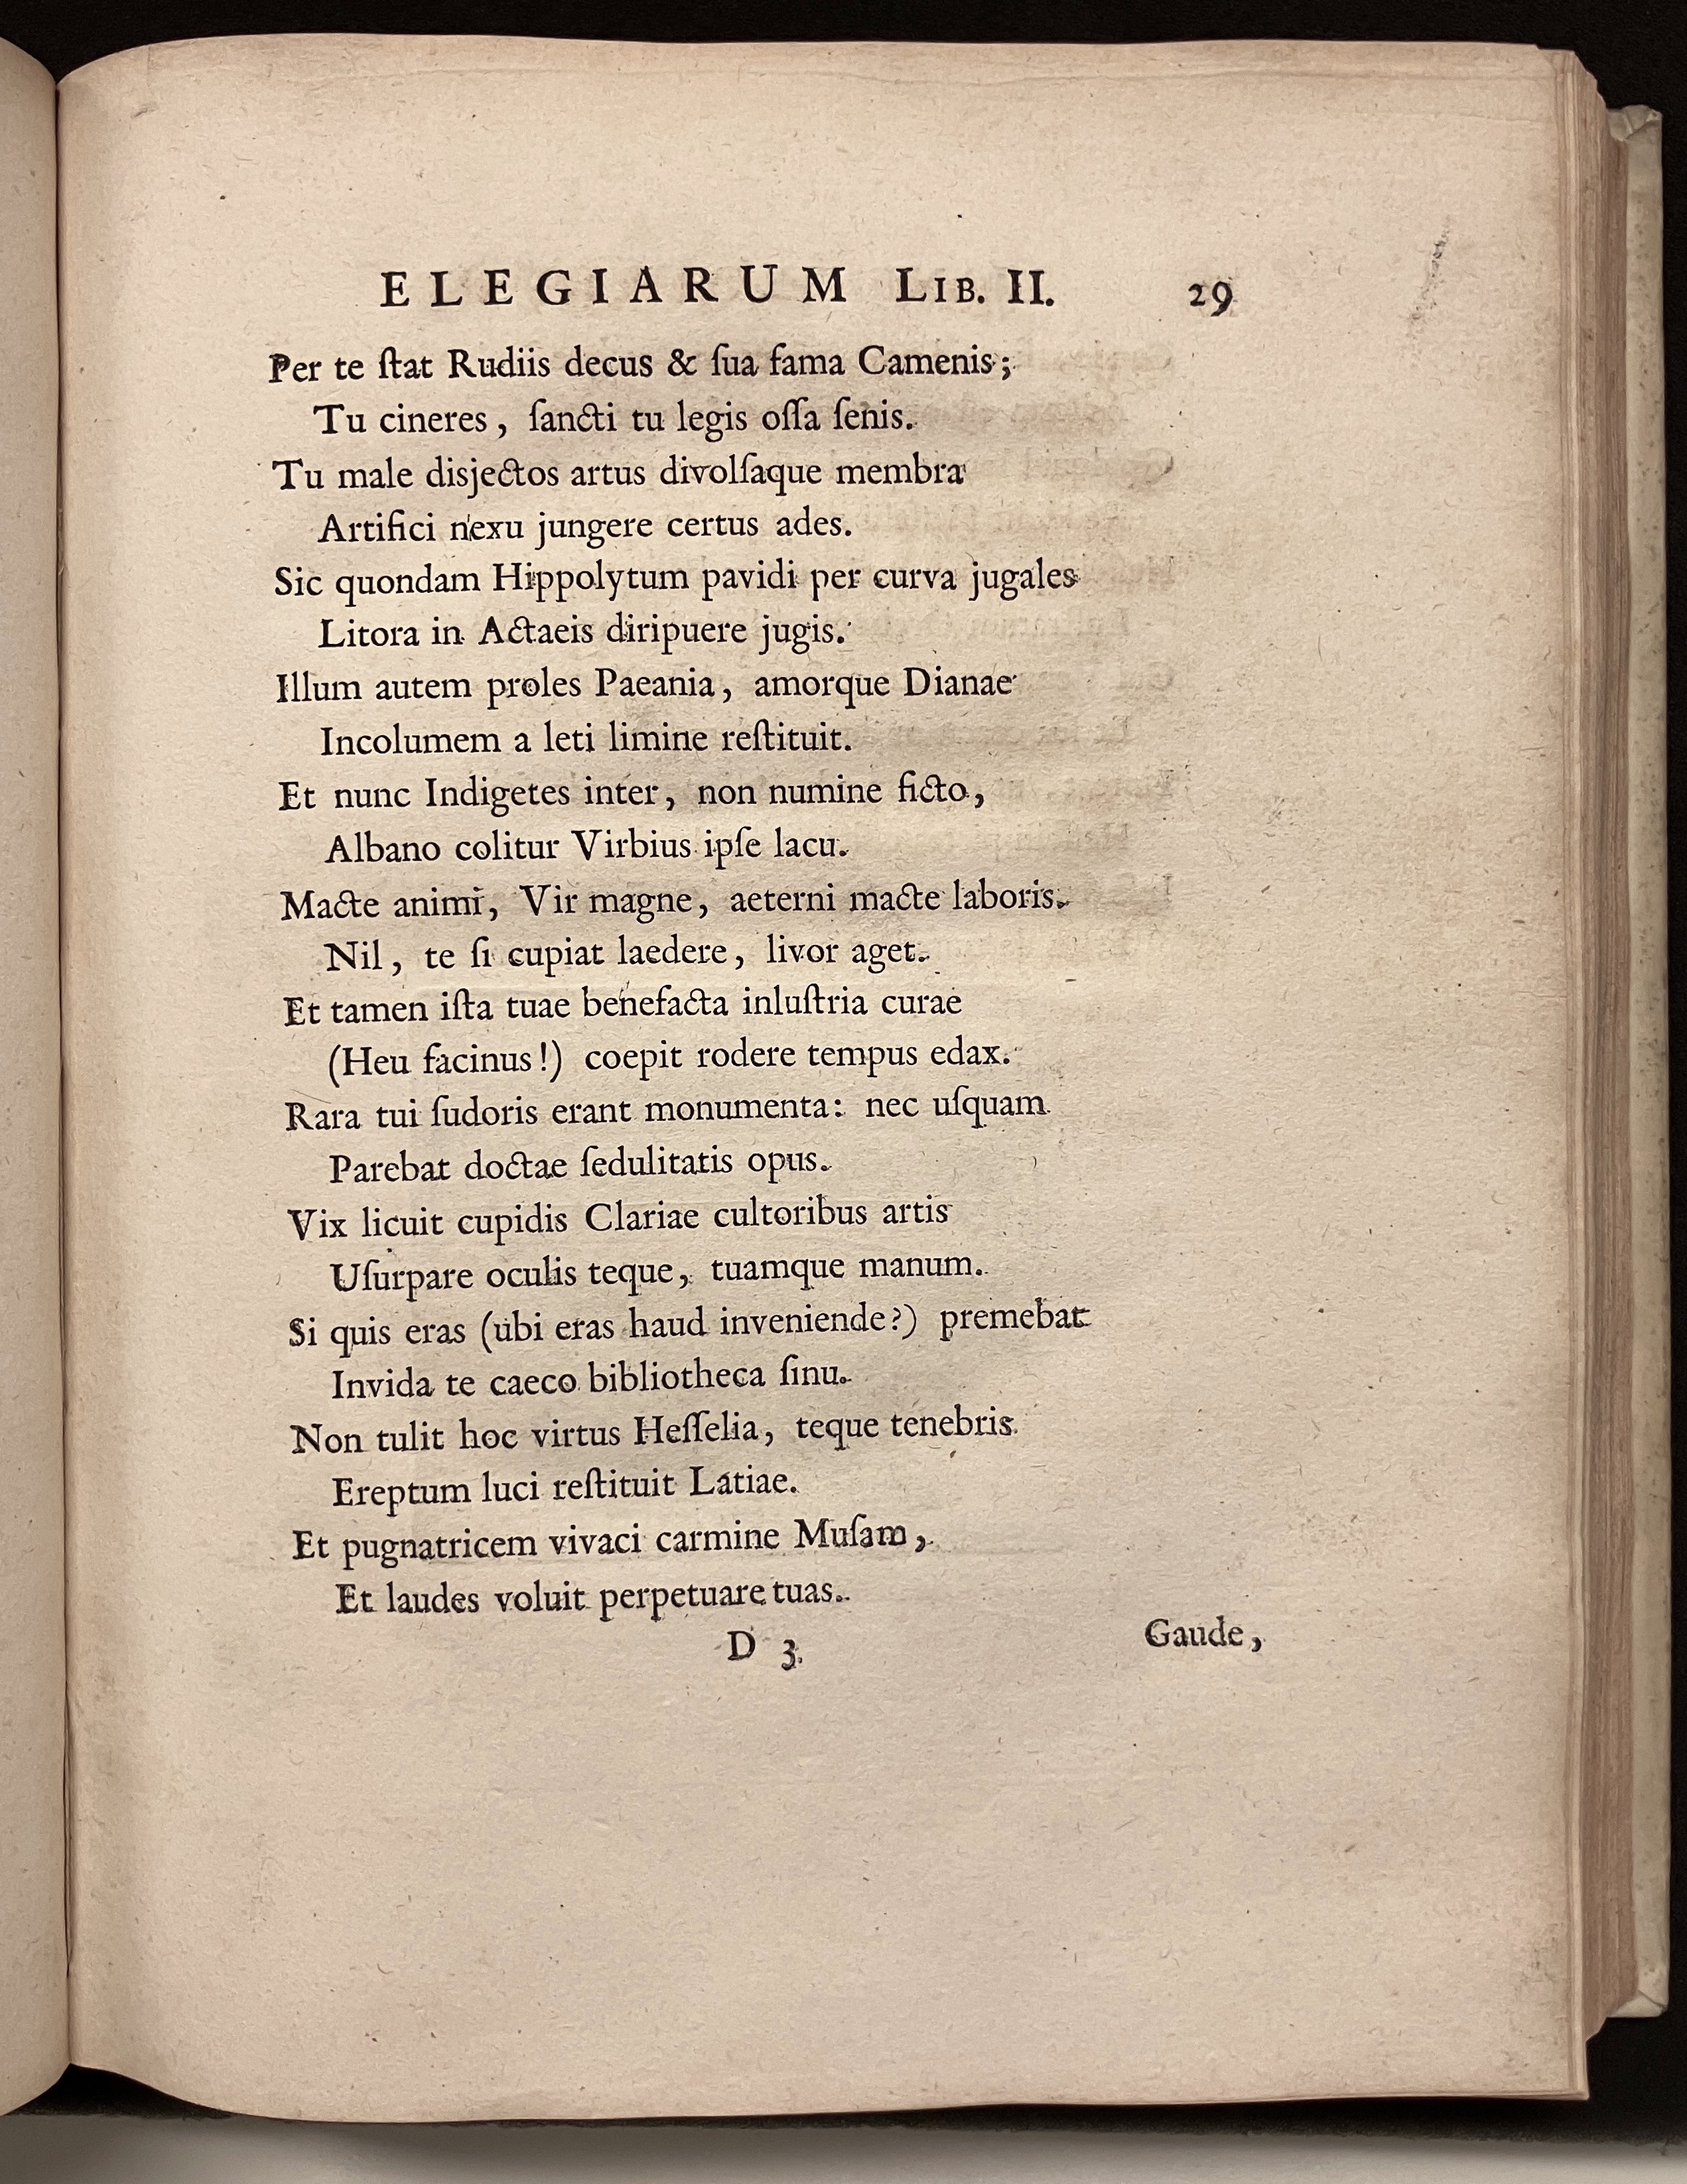 ELEGIARUM LIB. II. 29
Per te ſtat Rudiis decus & ſua fama Camenis;
Tu cineres, ſancti tu legis oſſa ſenis.
Tu male disjectos artus divolſaque membra
Artifici nexu jungere certus ades.
Sic quondam Hippolytum pavidi per curva jugales
Litora in Actaeis diripuere jugis.
Illum autem proles Paeania, amorque Dianae
Incolumem a leti limine reſtituit.
Et nunc Indigetes inter, non numine ficto,
Albano colitur Virbius ipſe lacu.
Macte animi, Vir magne, aeterni macte laboris.
Nil, te ſi cupiat laedere, livor aget.
Et tamen iſta tuae benefacta inluſtria curae
(Heu facinus!) coepit rodere tempus edax.
Rara tui ſudoris erant monumenta: nec uſquam
Parebat doctae ſedulitatis opus.
Vix licuit cupidis Clariae cultoribus artis
Uſurpare oculis teque, tuamque manum.
Si quis eras (ubi eras haud inveniende?) premebat
Invida te caeco bibliotheca ſinu.
Non tulit hoc virtus Heſſelia, teque tenebris
Ereptum luci reſtituit Latiae.
Et pugnatricem vivaci carmine Muſam,
Et laudes voluit perpetuare tuas.
D 3
Gaude,